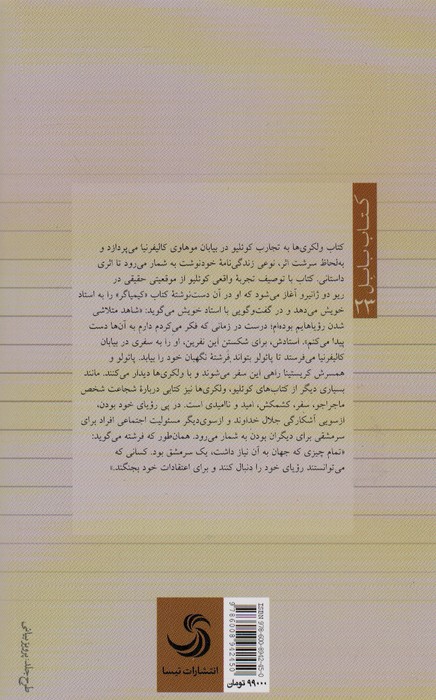 کتاب بابل
کتاب ولکری‌ها به تجارب کوئلیو در بیابان موهاوی کالیفرنیا می‌پردازد و
به‌لحاظ سرشت اثر، نوعی زندگی‌نامهٔ خودنوشت به شمار می‌رود تا اثری
داستانی. کتاب با توصیف تجربهٔ واقعی کوئلیو از موقعیتی حقیقی در
ریو دو ژانیرو آغاز می‌شود که او در آن دست‌نوشتهٔ کتاب «کیمیاگر» را به استاد
خویش می‌دهد و در گفت‌وگویی با استاد خویش می‌گوید: «شاهد متلاشی
شدن رؤیاهایم بوده‌ام؛ درست در زمانی که فکر می‌کردم دارم به آن‌ها دست
پیدا می‌کنم». استادش، برای شکستن این نفرین، او را به سفری در بیابان
کالیفرنیا می‌فرستد تا پائولو بتواند فرشتهٔ نگهبان خود را بیابد. پائولو و
همسرش کریستینا راهی این سفر می‌شوند و با ولکری‌ها دیدار می‌کنند. مانند
بسیاری دیگر از کتاب‌های کوئلیو، ولکری‌ها نیز کتابی دربارهٔ شجاعت شخص
ماجراجو، سفر، کشمکش، امید و ناامیدی است. در پی رؤیای خود بودن،
ازسویی آشکارگی جلال خداوند و ازسوی‌دیگر مسئولیت اجتماعی افراد برای
سرمشقی برای دیگران بودن به شمار می‌رود. همان‌طور که فرشته می‌گوید:
«تمام چیزی که جهان به آن نیاز داشت، یک سرمشق بود. کسانی که
می‌توانستند رؤیای خود را دنبال کنند و برای اعتقادات خود بجنگند.»
طرح جلد: پرویز بیانی
انتشارات تیسا
ISBN: 978-600-8942-45-0
9786008942450
۹۹۰۰۰ تومان